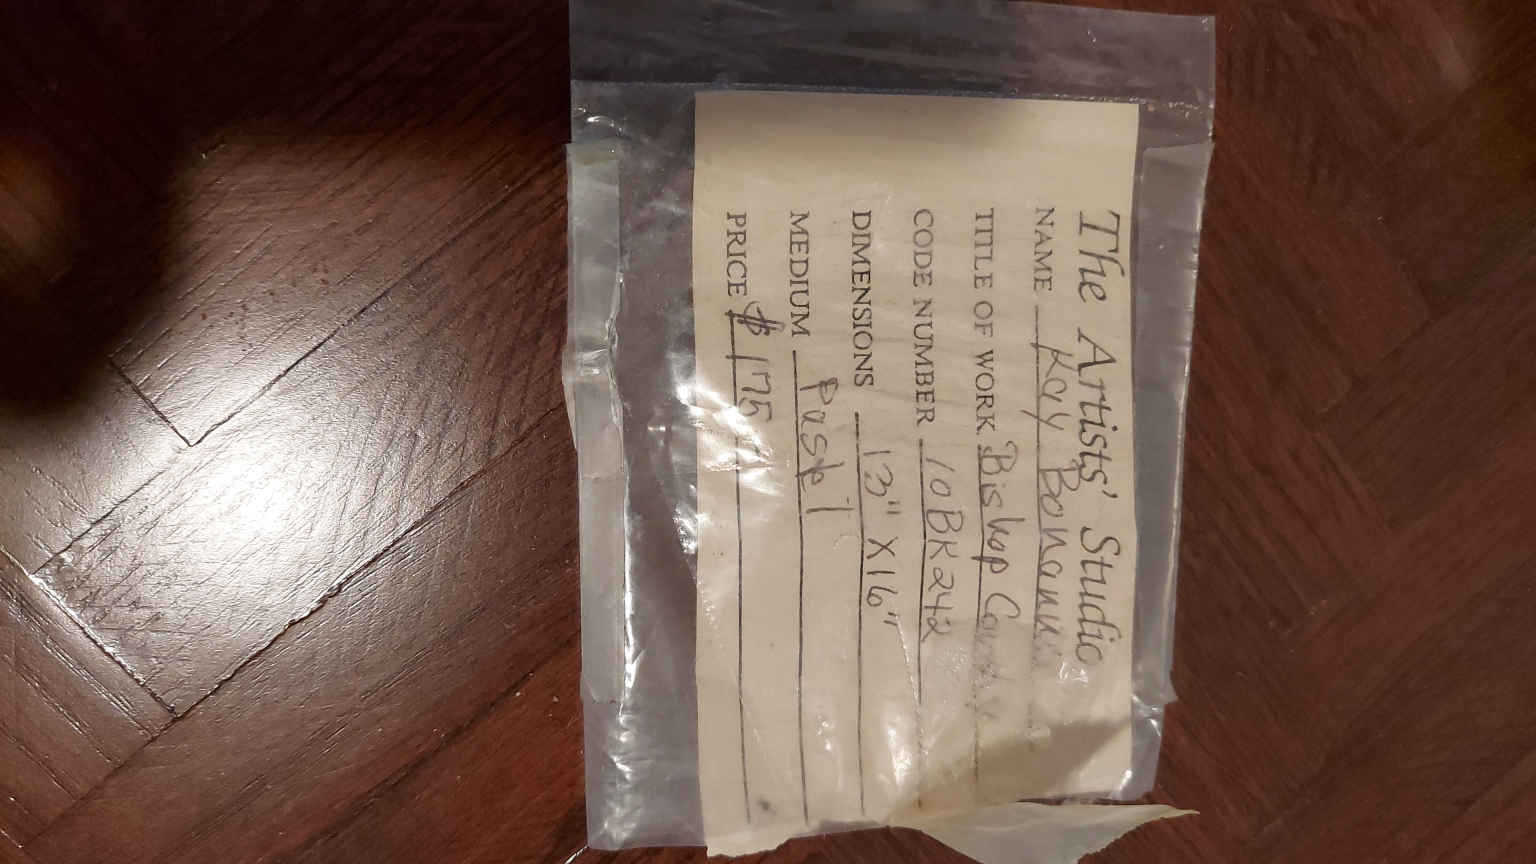 The Artists' Studio
NAME Kay Bonanno
TITLE OF WORK Bishop
CODE NUMBER 10BK242
DIMENSIONS 13" X 16"
MEDIUM Pastel
PRICE $175